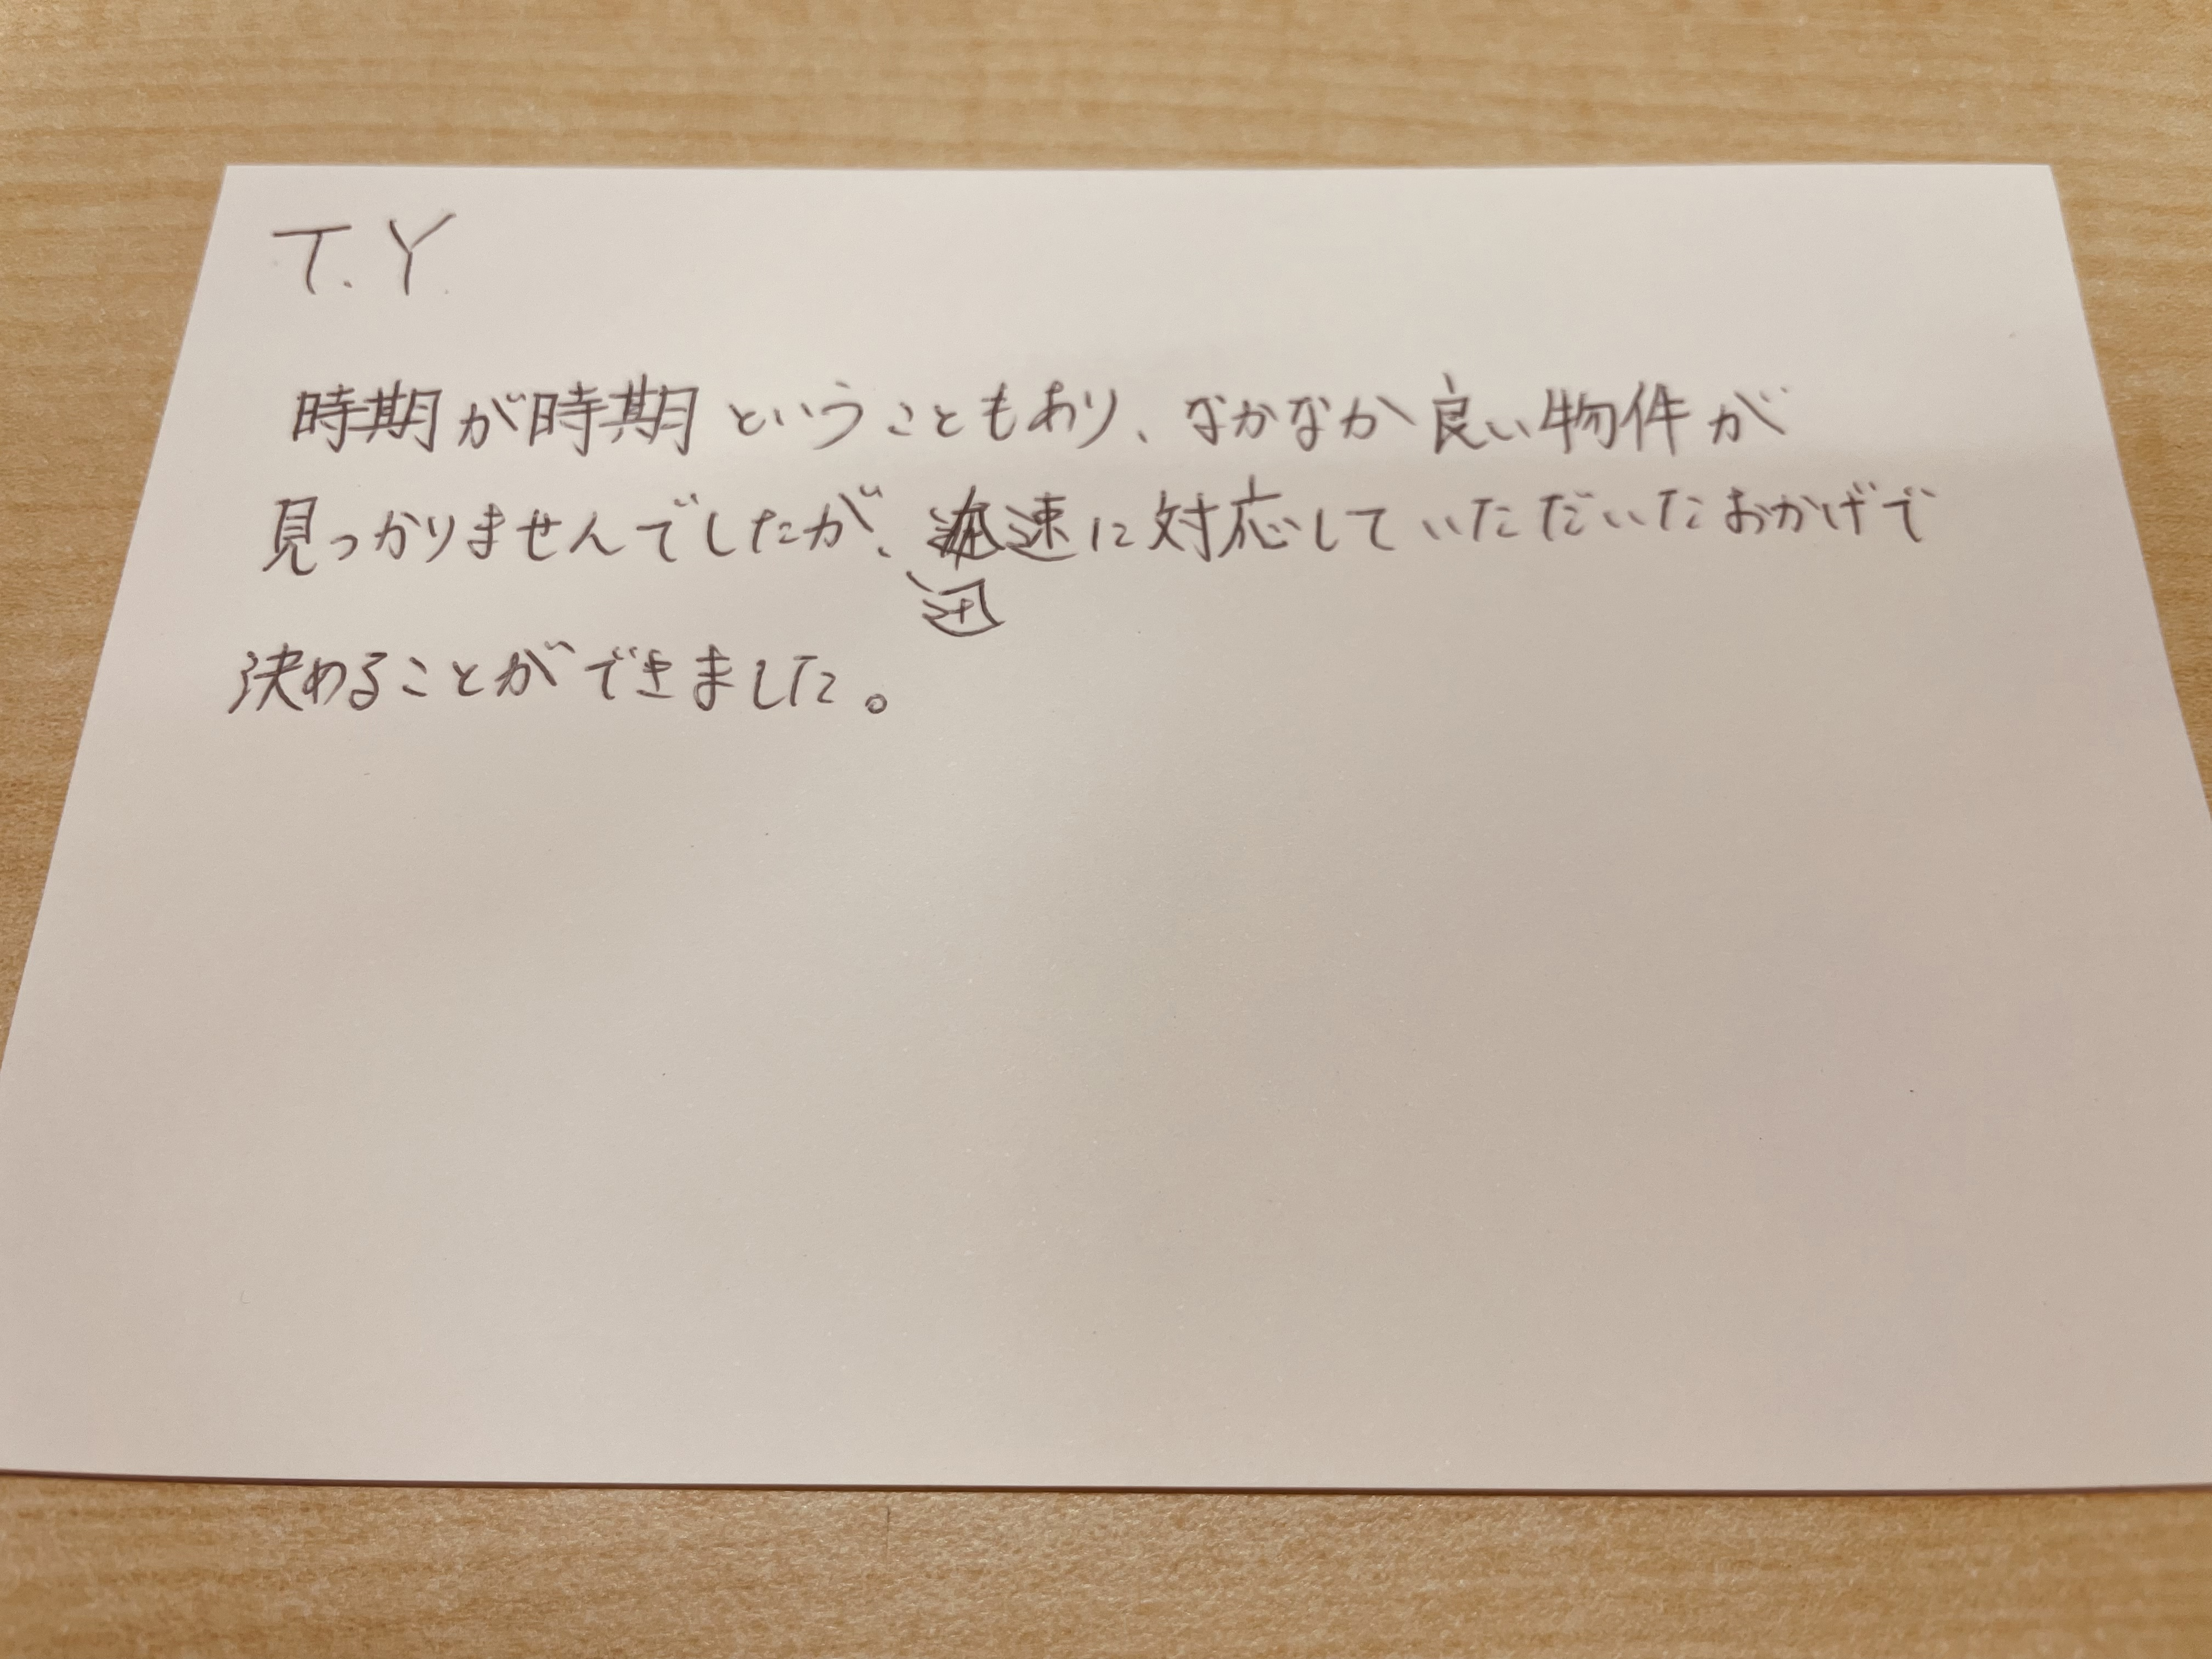 T.Y.
時期が時期ということもあり、なかなか良い物件が
見つかりませんでしたが、迅速に対応していただいたおかげで
決めることができました。